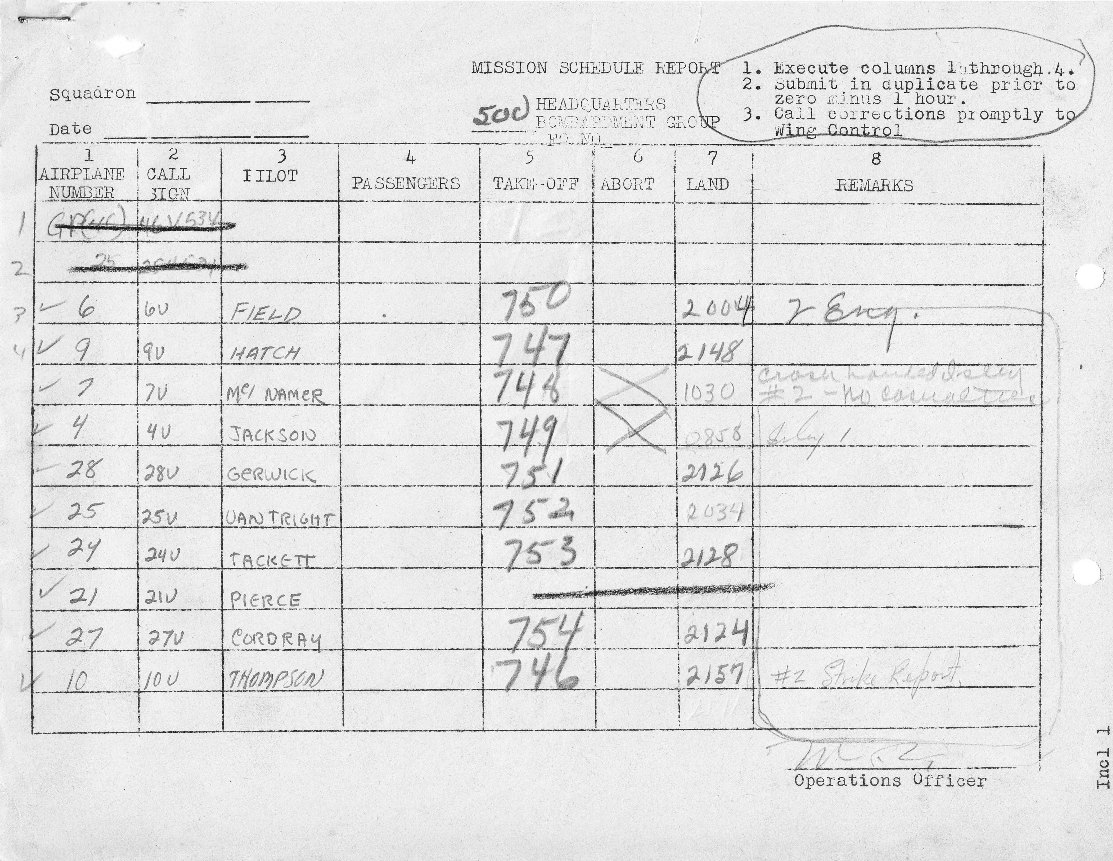 MISSION SCHEDULE REPORT
1. Execute columns 1 through 4.
2. Submit in duplicate prior to
zero minus 1 hour.
3. Call corrections promptly to
Wing Control
Squadron
500 HEADQUARTERS
BOMBARDMENT GROUP
Date
1 2 3 4 5 6 7 8
AIRPLANE NUMBER CALL SIGN PILOT PASSENGERS TAKE-OFF ABORT LAND REMARKS
1
2 25
3 6 6V FIELD 750 2004 2 Eng.
4 9 9V HATCH 747 2148
7 7V Mc NAMER 748 1030 Crash Landed Isley #2 - No Casualties
4 4V JACKSON 749 0858
28 28V GERWICK 751 2126
25 25V VANTRIGHT 752 2034
24 24V TACKETT 753 2128
21 21V PIERCE
27 27V CORDRAY 754 2124
10 10V THOMPSON 746 2157 #2 Strike Report.
Operations Officer
Incl 1